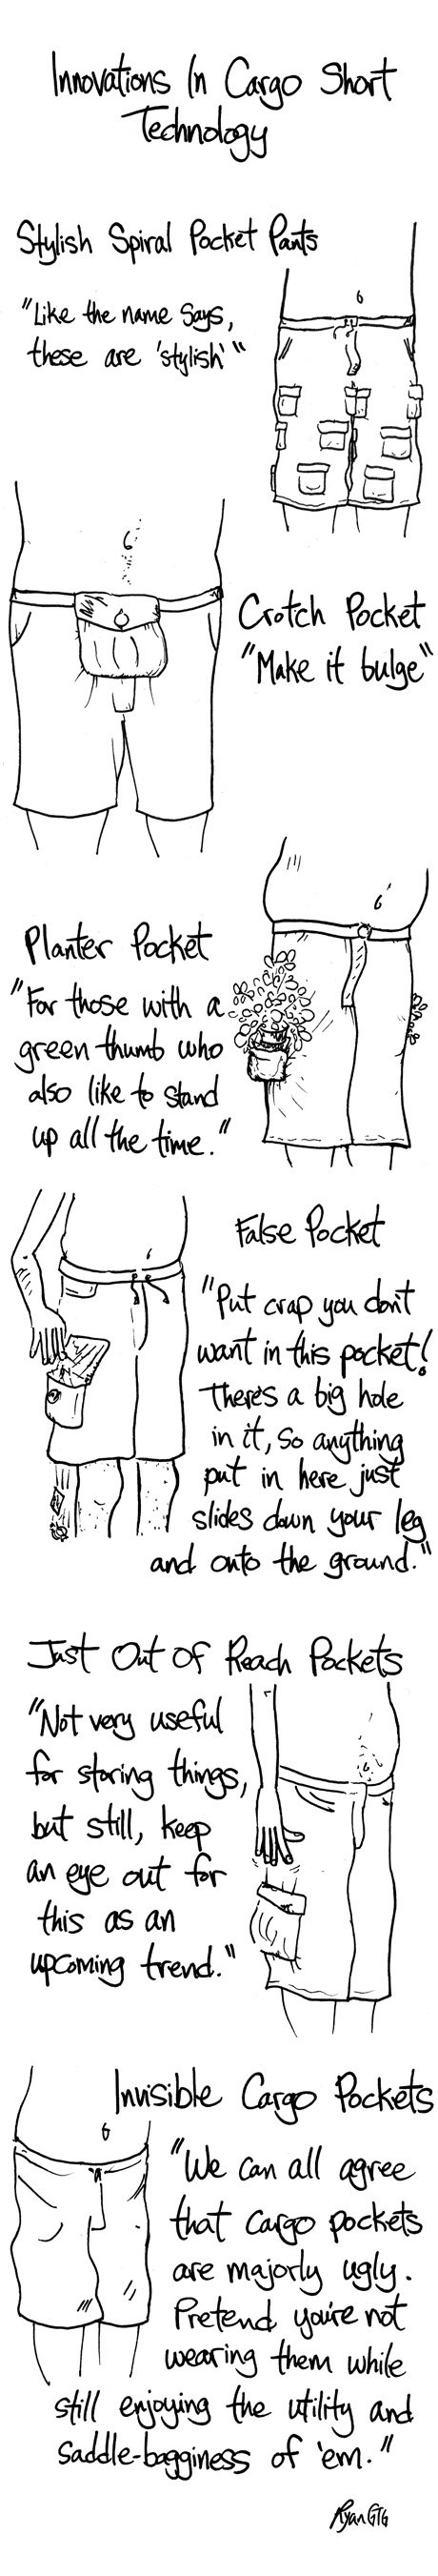 Innovations In Cargo Short
Technology
Stylish Spiral Pocket Pants
"Like the name says,
these are 'stylish'"
Crotch Pocket
"Make it bulge"
Planter Pocket
"For those with a
green thumb who
also like to stand
up all the time."
False Pocket
"Put crap you don't
want in this pocket!
There's a big hole
in it, so anything
put in here just
slides down your leg
and onto the ground."
Just Out Of Reach Pockets
"Not very useful
for storing things,
but still, keep
an eye out for
this as an
upcoming trend."
Invisible Cargo Pockets
"We can all agree
that cargo pockets
are majorly ugly.
Pretend you're not
wearing them while
still enjoying the utility and
saddle-bagginess of 'em."
RyanGTG